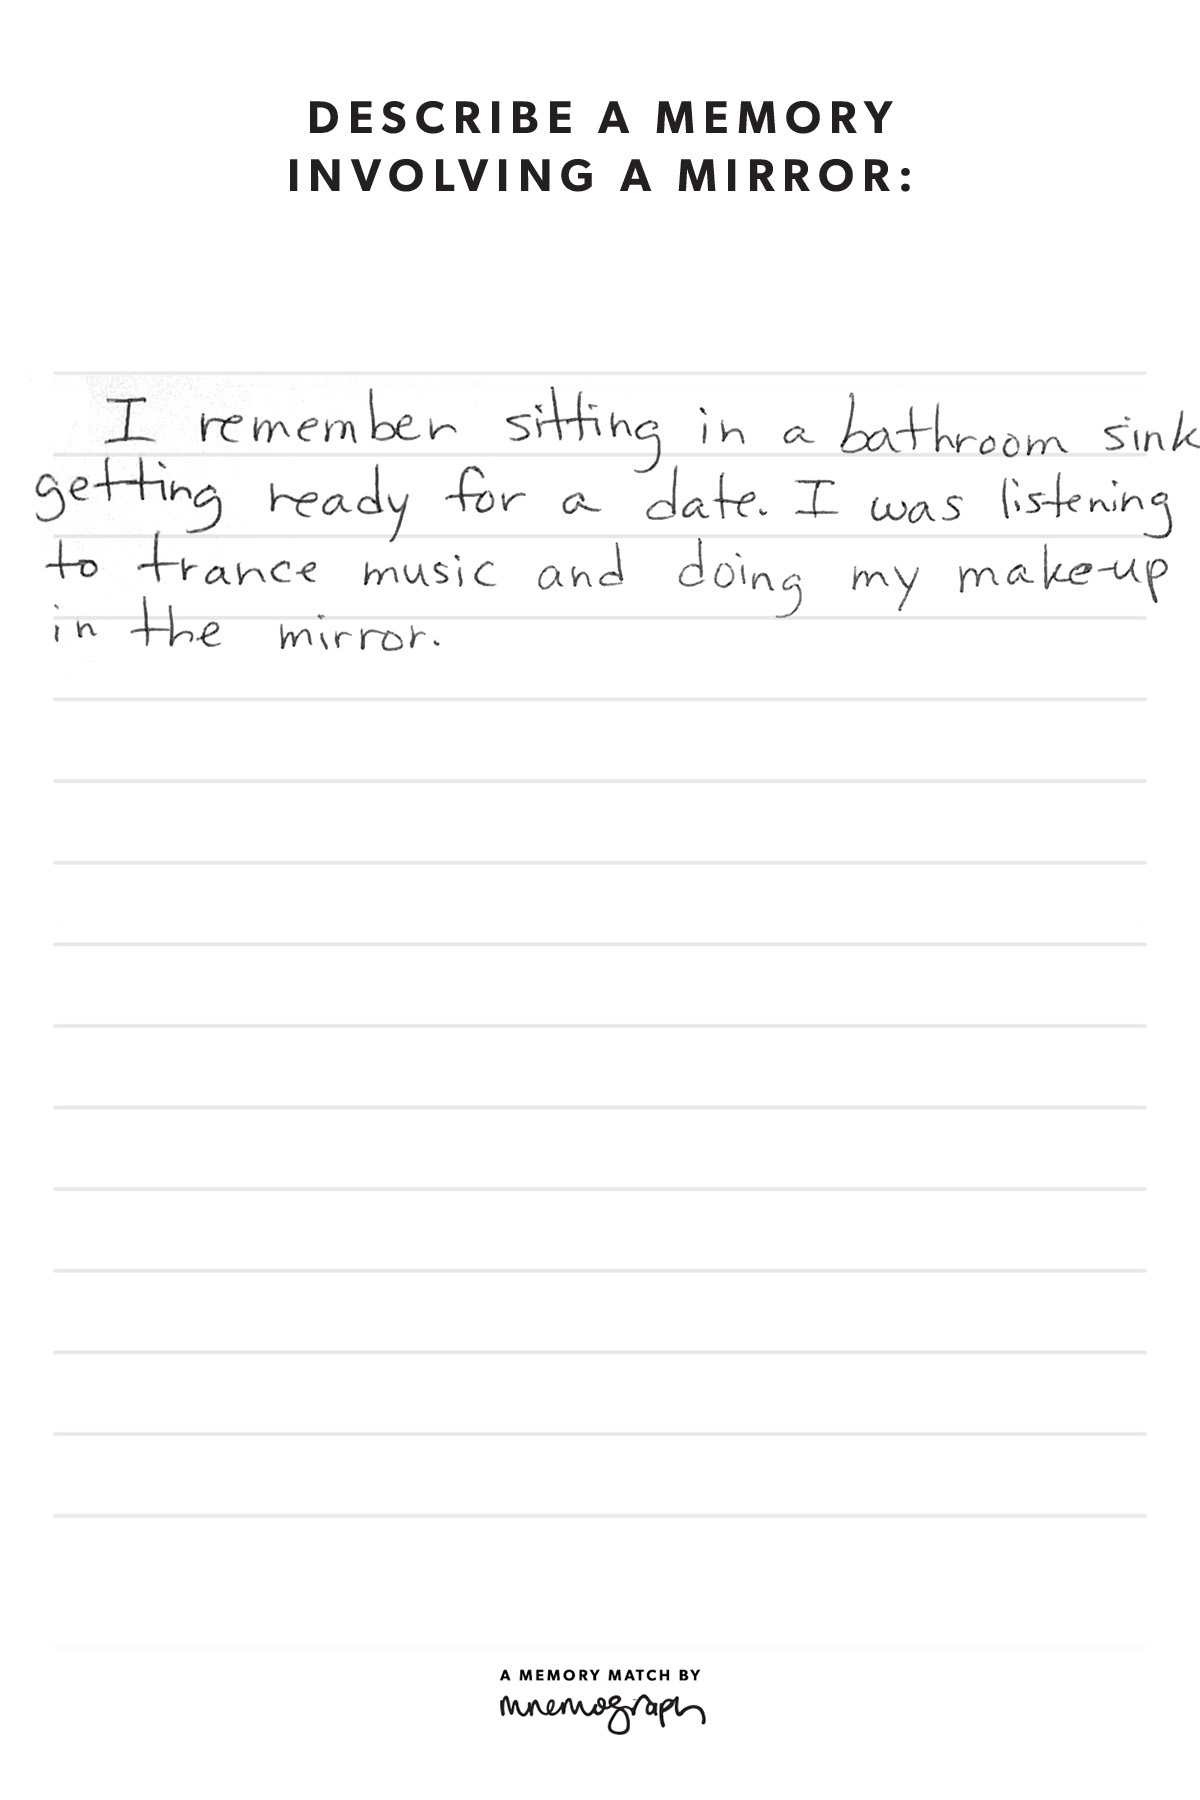 DESCRIBE A MEMORY
INVOLVING A MIRROR:
I remember sitting in a bathroom sink
getting ready for a date. I was listening
to trance music and doing my make-up
in the mirror.
A MEMORY MATCH BY
mnemograph